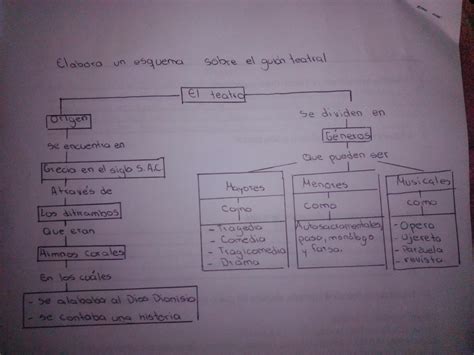 Elabora un esquema sobre el guión teatral
El teatro
Origen
se encuentra en
Grecia en el siglo S.A.C
Através de
Los ditirambos
Que eran
Himnos corales
En los cuáles
- se alababa al Dios Dionisio
- se contaba una historia
se dividen en
Géneros
Que pueden ser
Mayores
como
- Tragedia
- Comedia
- Tragicomedia
- Drama
Menores
como
Autosacramentales,
paso, monólogo
y farsa.
Musicales
como
- Opera
- Ujereta
- Harzuela
- revista.